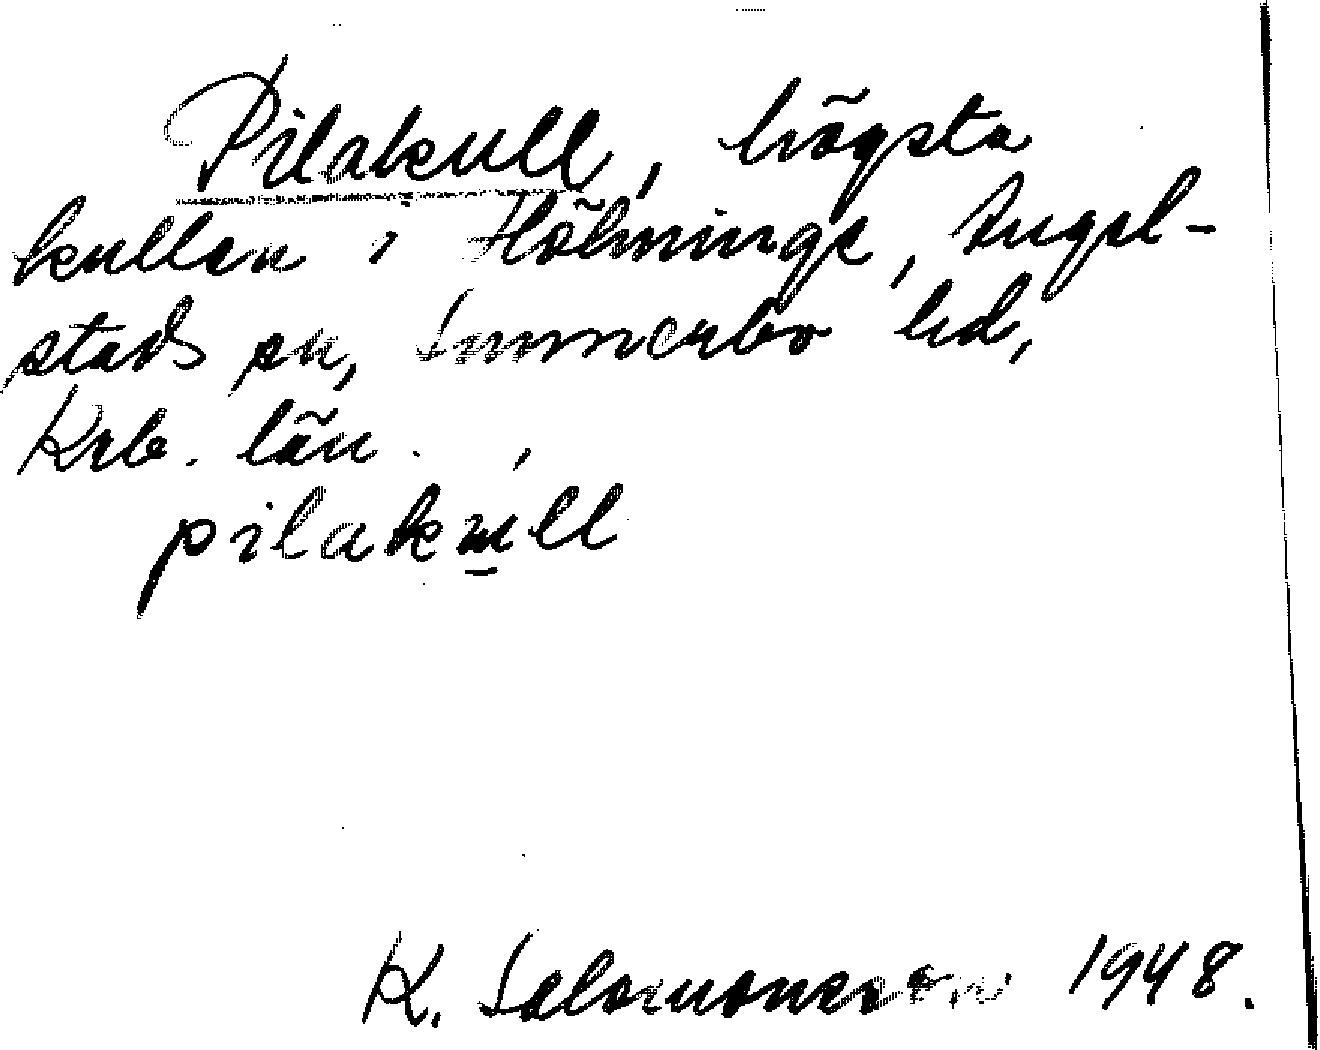 Pilakull, högsta
kullen i Hölminge, Angel-
stads sn, Sunnerbo hd,
Krb. län.
pilakull
K. Salomonsson 1948.